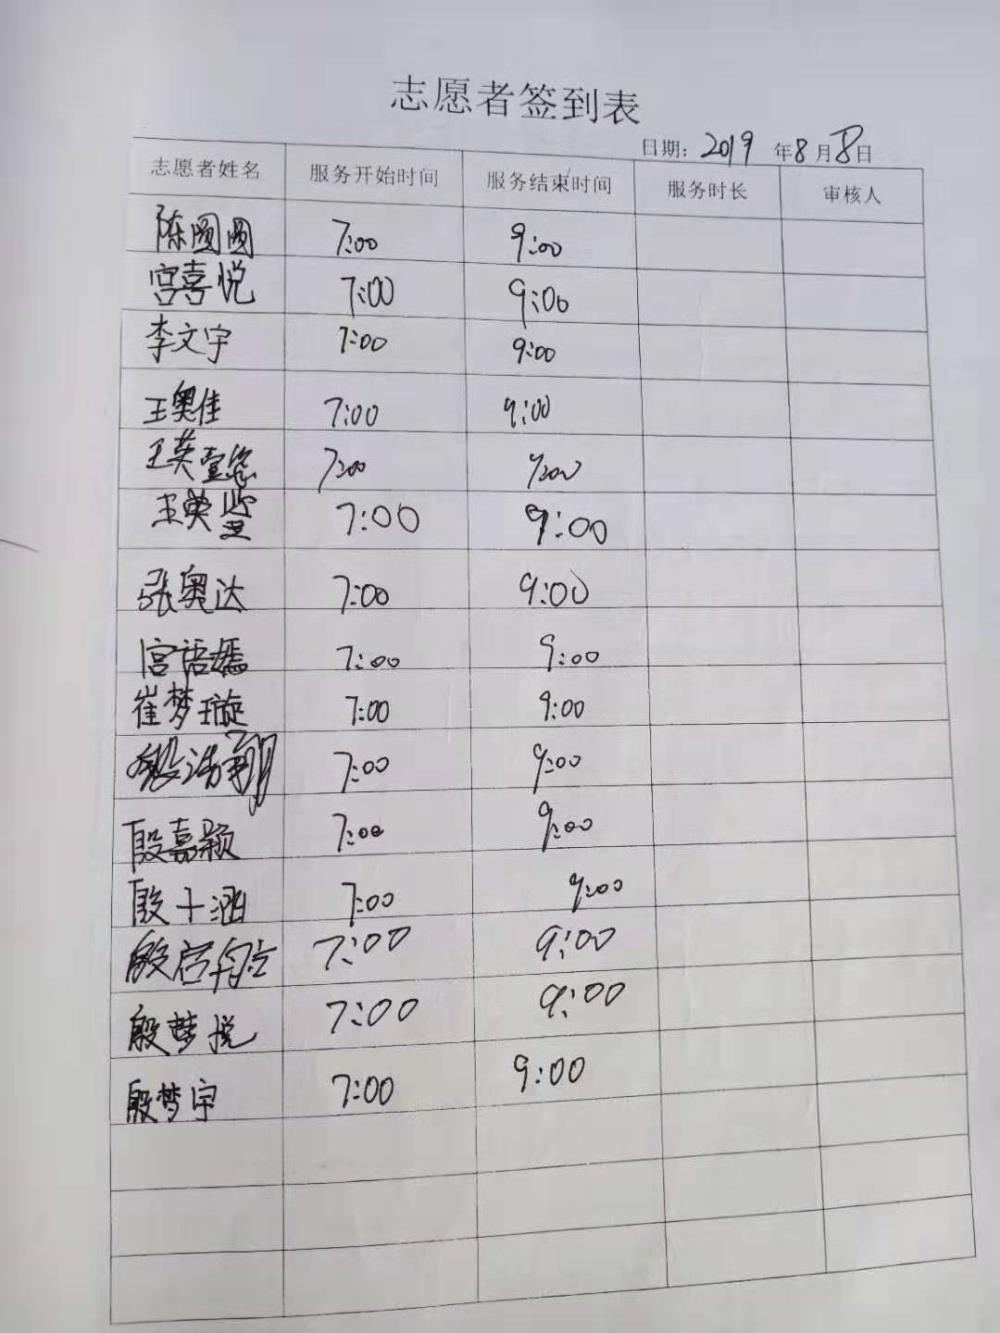 志愿者签到表
日期: 2019 年8月8日
志愿者姓名 服务开始时间 服务结束时间 服务时长 审核人
陈圆圆 7:00 9:00
宫喜悦 7:00 9:00
李文宇 7:00 9:00
王奥佳 7:00 9:00
王英 7:00 9:00
王英莹 7:00 9:00
张奥达 7:00 9:00
宫语嫣 7:00 9:00
崔梦璇 7:00 9:00
殷浩翔 7:00 9:00
殷嘉颖 7:00 9:00
殷十涵 7:00 9:00
殷 7:00 9:00
殷梦悦 7:00 9:00
殷梦宇 7:00 9:00